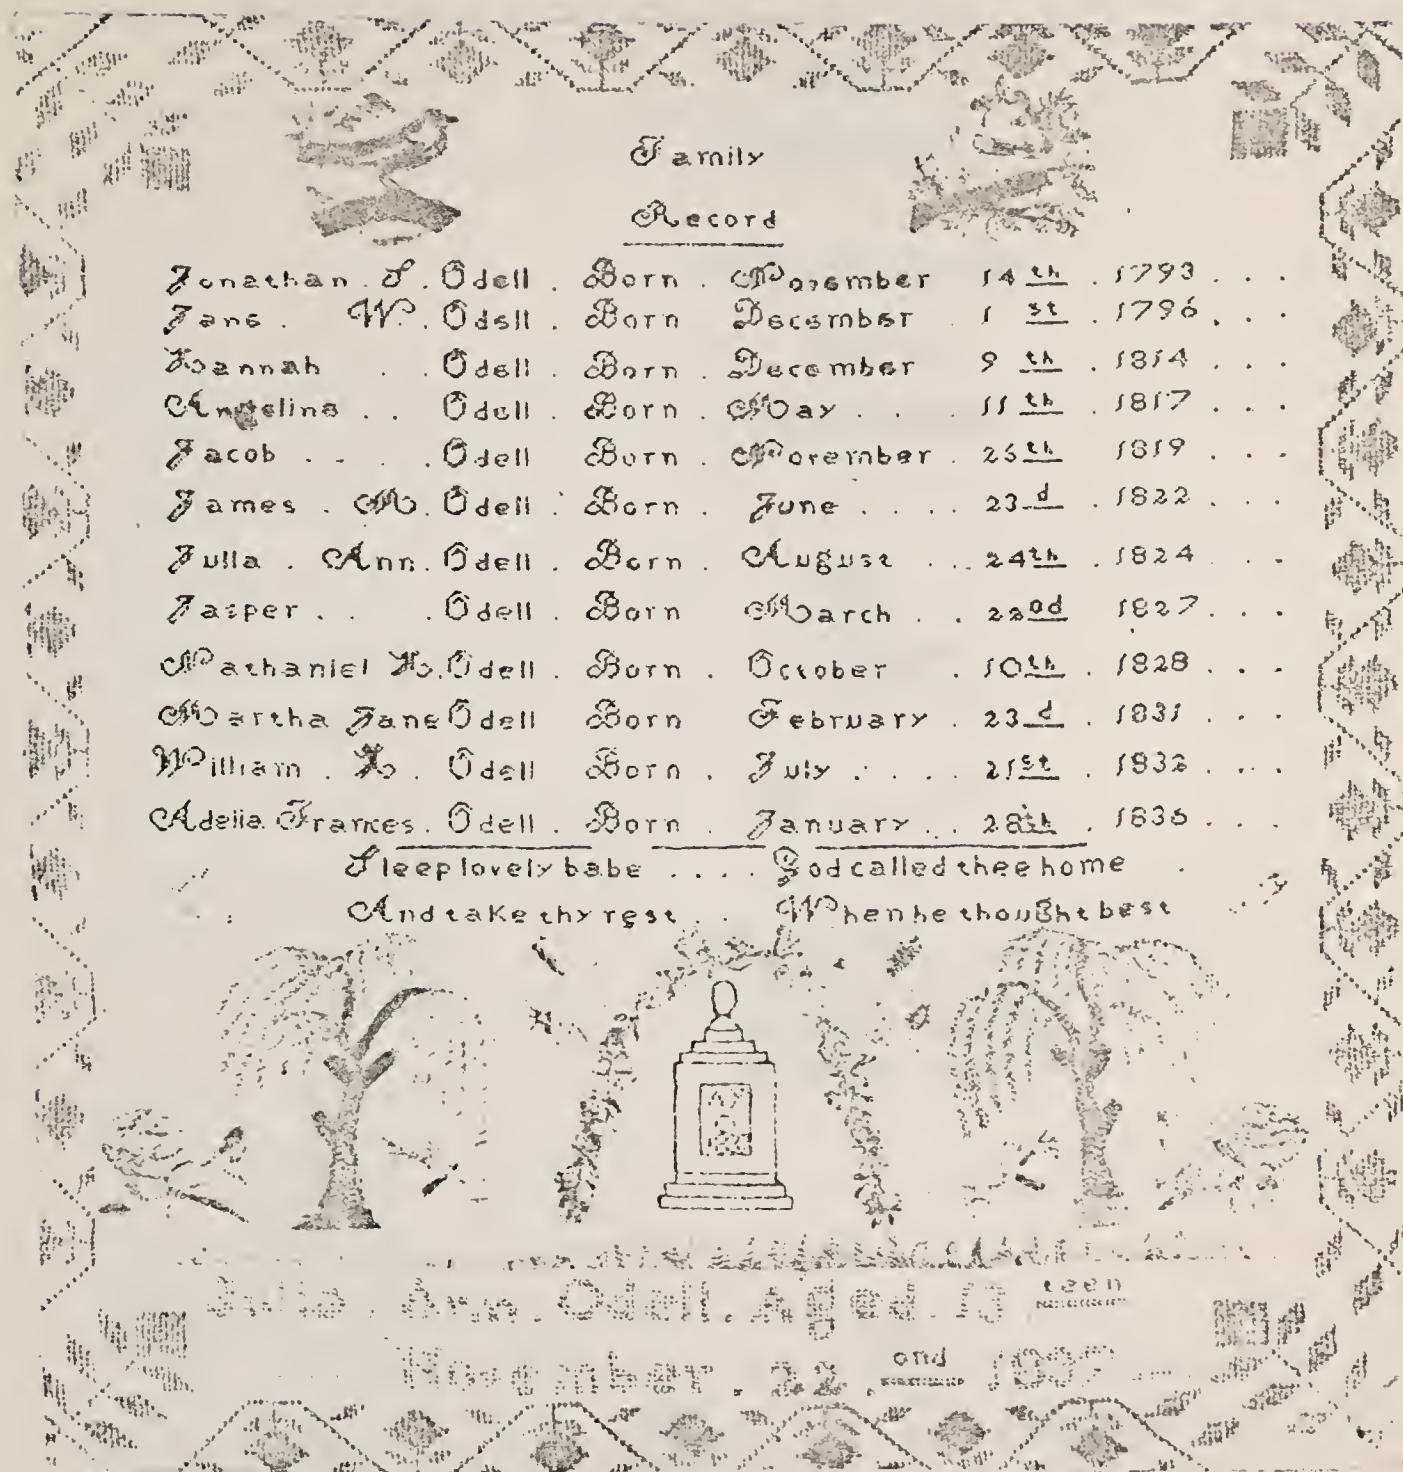 Family
Record
Jonathan . S . Odell . Born . November 14th . 1793 . . .
Jane . W . Odell . Born December . 1 st . 1796 . . .
Hannah . . Odell . Born . December 9 th . 1814 . . .
Angeline . . Odell . Born . May . . . 11th . 1817 . . .
Jacob . . . . Odell Born . November . 25th . 1819 . . .
James . M . Odell . Born . June . . . . 23 d . 1822 . . .
Julia . Ann . Odell . Born . August . . . 24th . 1824 . . .
Jasper . . . Odell . Born March . . 22nd 1827 . . .
Nathaniel H . Odell . Born . October . 10th . 1828 . . .
Martha Jane Odell Born February . 23 d . 1831 . . .
William . H . Odell Born . July . . . . 21st . 1832 . . .
Adelia Frances . Odell . Born . January . . 28th . 1836 . . .
Sleep lovely babe . . . . God called thee home
And take thy rest . . When he thought best
Julia . Ann . Odell . Aged . 13 teen
November . 22 . ond 1837